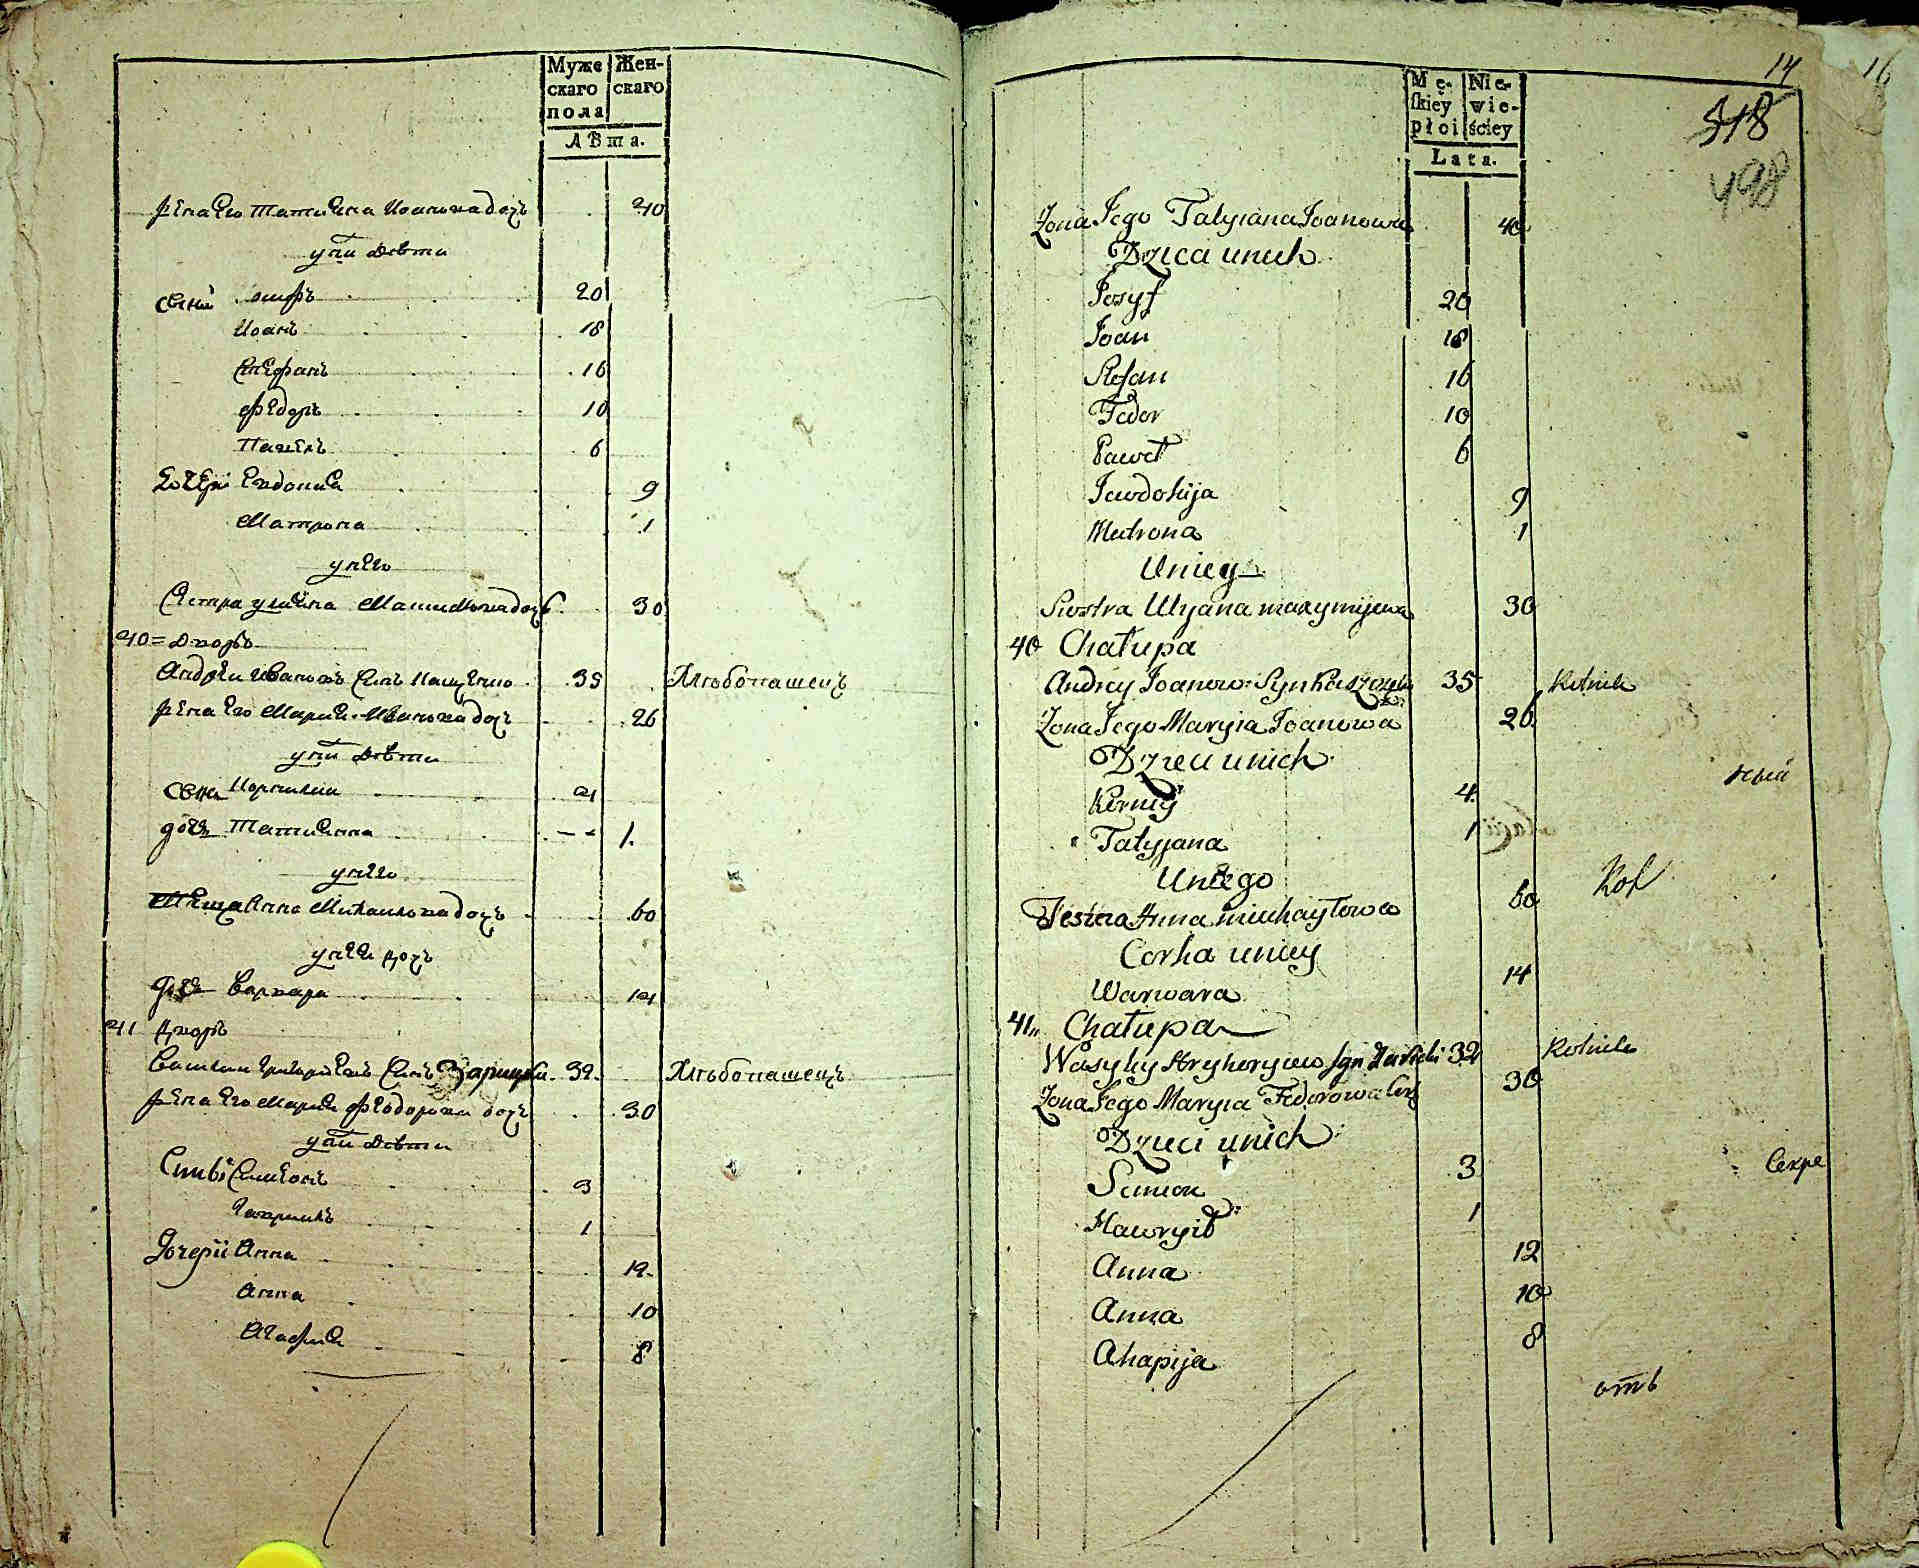 Муже Жен-
скаго скаго
пола
Лѣта.
жена Его Татияна Иванова дочь 40
у них дѣти
сыны осифъ 20
Иоанъ 18
Стефанъ 16
Федоръ 10
Павелъ 6
дочери Евдокия 9
Матрона 1
у него
Сестра улияна Максимова дочь 30
40 = дворъ
Андрей Ивановъ Синъ 35 Хлѣбопашецъ
жена Его Мария Иванова дочь 26
у них дѣти
сынъ Корнилий 4
дочь Татияна -- 1.
у него
Теща Анна Михаилова дочь 60
у нея дочь
дочь Варвара 14
41 дворъ
Василий Григориевъ Синъ Зарицки 32. Хлѣбопашецъ
жена Его Мария Феодорова дочь 30
у них дѣти
Сыны Симеонъ 3
Гавриилъ 1
Дочерѣ Анна 12.
Анна 10
Агафия 8
14 16
Mę- Nie-
skiey wie-
płci ściey
Lata.
518
498
Żona Jego Tatyiana Joanowa 40
Dzieci unich
Josyf 20
Joan 18
Stefan 16
Fedor 10
Paweł 6
Jewdokija 9
Matrona 1
Uniey
Siostra Ulyana maxymijewa 30
40 Chałupa
Andrey Joanow Syn 35 Rolnik
Żona Jego Maryia Joanowa 26
Dzieci unich
Korniy 4
ный
Tatyjana 1
Uniego
Rol
Teszcza Anna michayłowa 60
Corka uniey
Warwara 14
41 „ Chałupa
Wasyly Hryhoryiew syn Zaricki 32 Rolnik
Żona Jego Maryia Fedorowa Cor 30
Dzieci unich
Секре
Semion 3
Hawryił 1
Anna 12
Anna 10
Ahapija 8
отъ